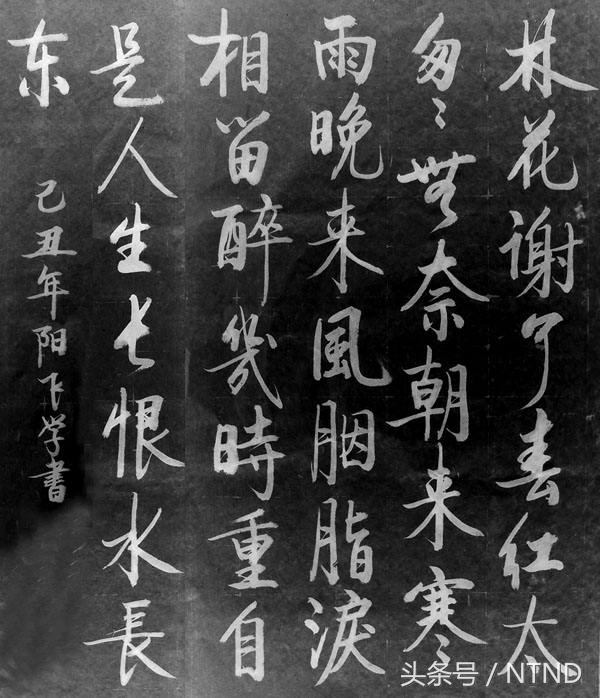 林花谢了春红太
匆〻無奈朝来寒
雨晚来風胭脂淚
相留醉幾時重自
是人生长恨水長
东
己丑年阳飞学書
头条号 / NTND